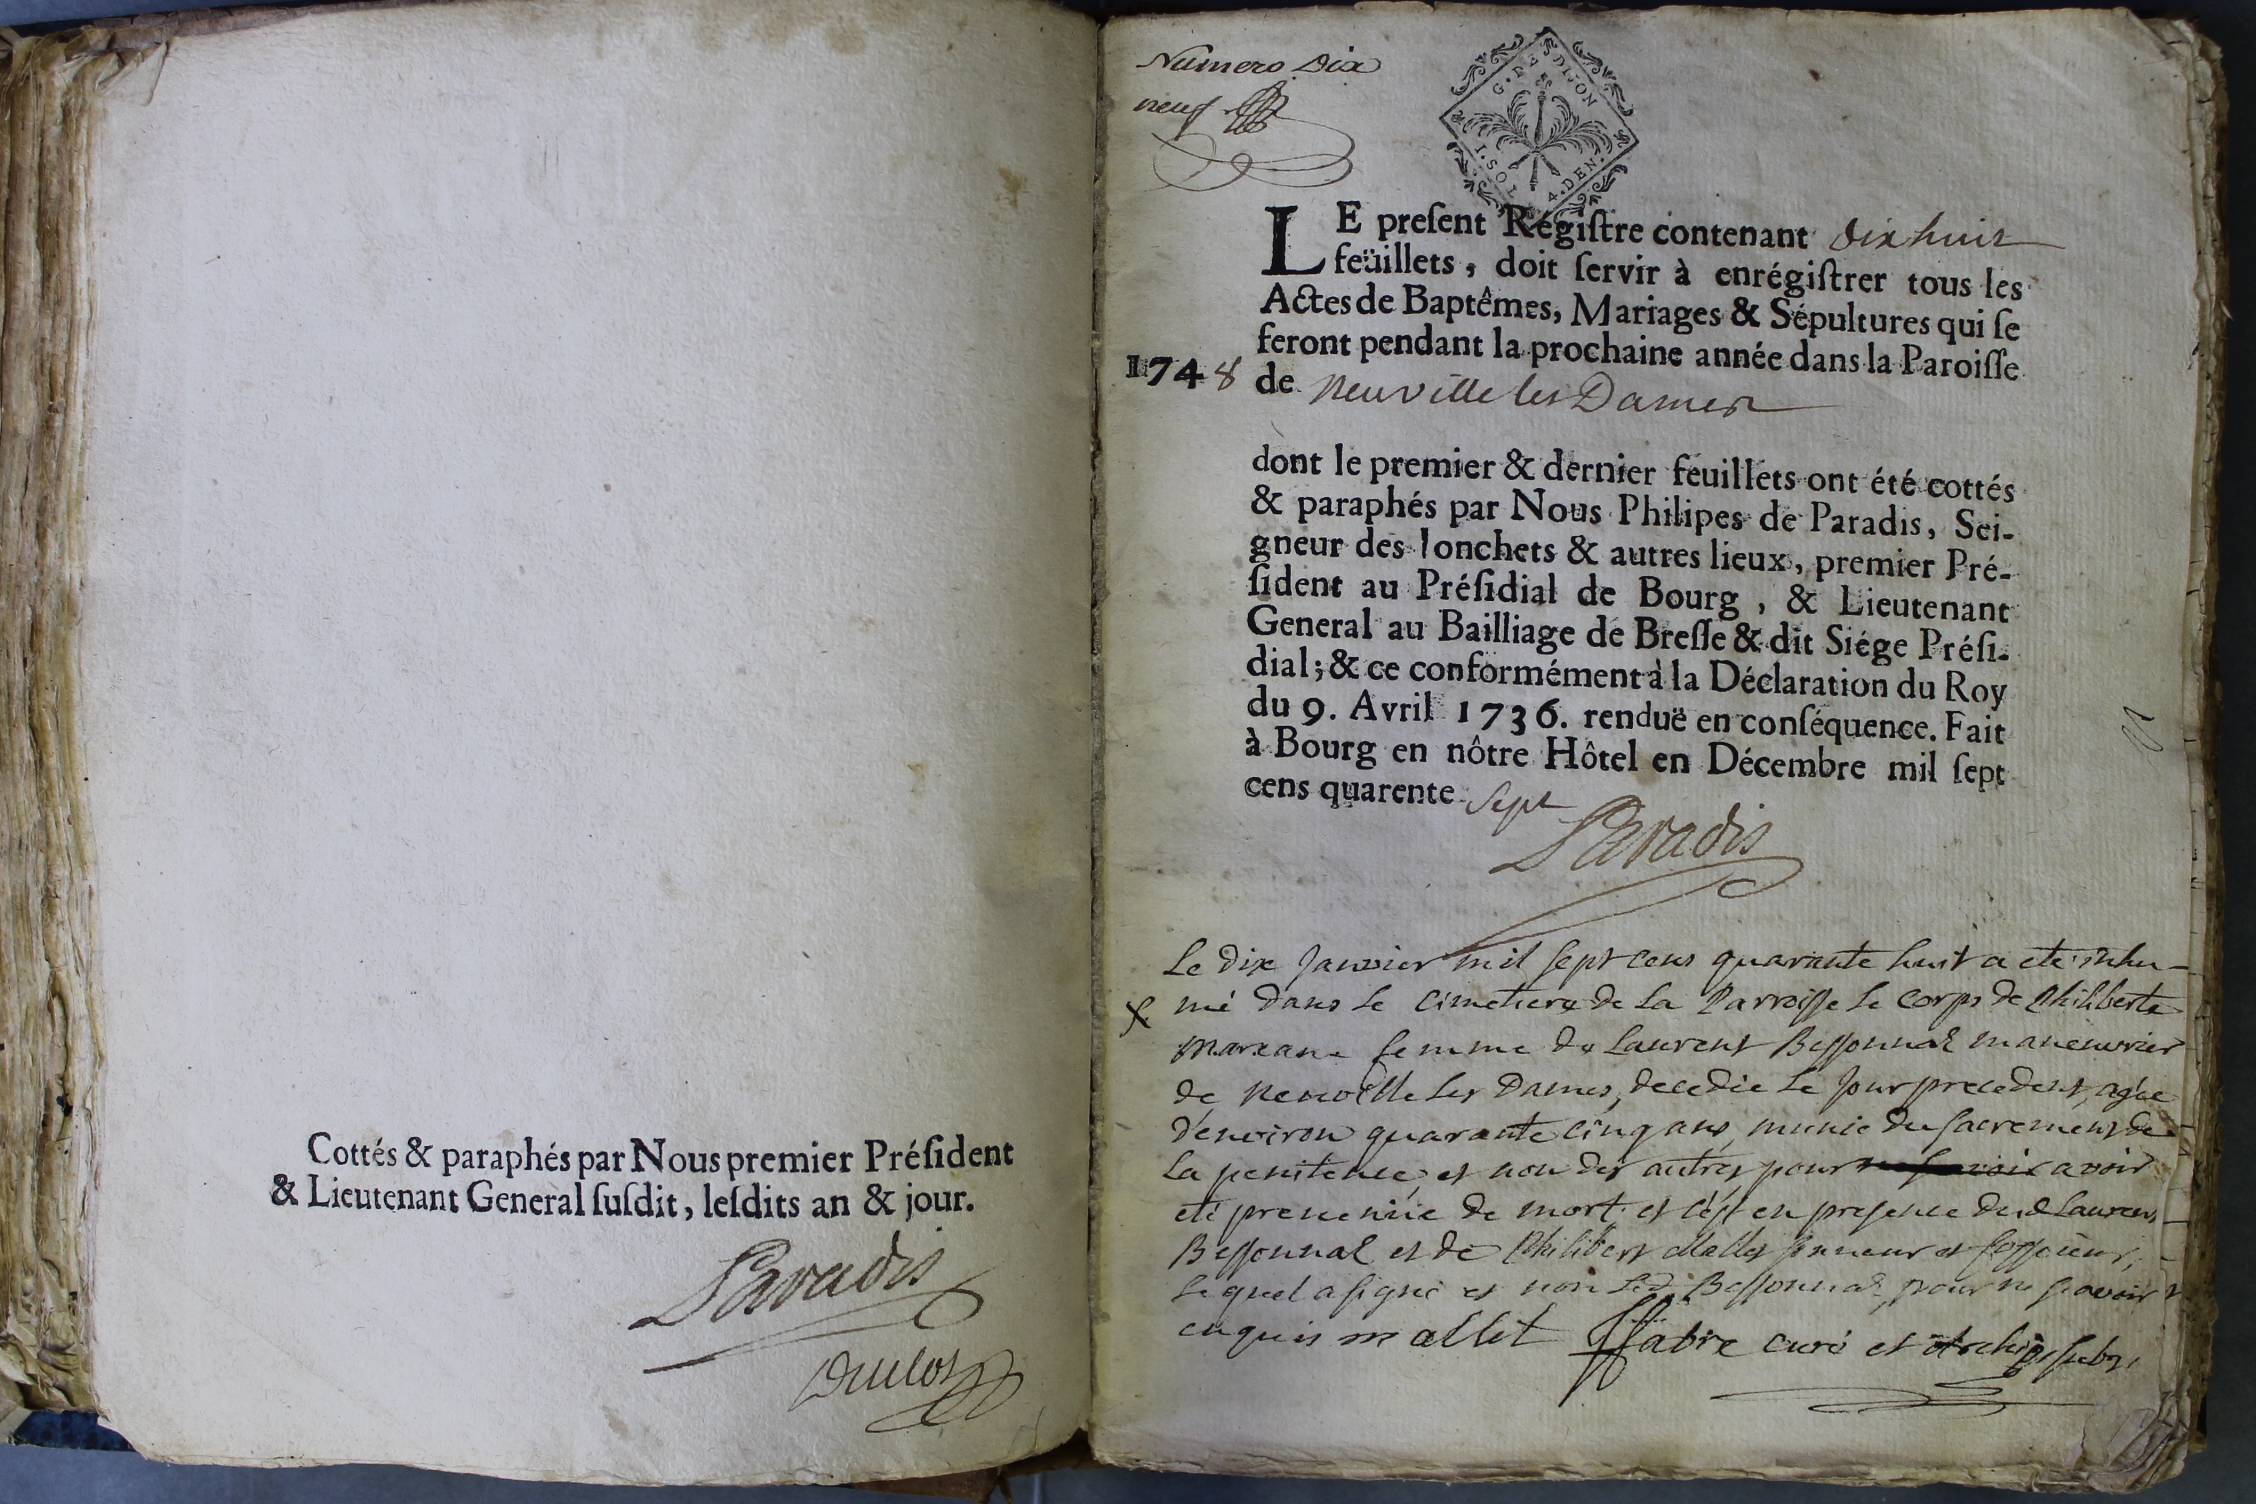 Cottés & paraphés par Nous premier Préſident
& Lieutenant General ſuſdit, leſdits an & jour.
Paradis
Duclos
Numero Dix
neuf
G. DE DIJON
I. SOL 4. DEN.
LE preſent Régiſtre contenant dix huit
feüillets, doit ſervir à enrégiſtrer tous les
Actes de Baptêmes, Mariages & Sépultures qui ſe
feront pendant la prochaine année dans la Paroiſſe
1748 de Neuville les Dames
dont le premier & dernier feuillets ont été cottés
& paraphés par Nous Philipes de Paradis, Sei-
gneur des Ionchets & autres lieux, premier Pré-
ſident au Préſidial de Bourg, & Lieutenant
General au Bailliage de Breſſe & dit Siége Préſi-
dial; & ce conformément à la Déclaration du Roy
du 9. Avril 1736. renduë en conſéquence. Fait
à Bourg en nôtre Hôtel en Décembre mil ſept
cens quarente Sept
Paradis
Le dix Janvier mil sept cens quarante huit a eté inhu-
mé dans le cimetiere de la Parroisse le corps de Philiberte
femme de Laurent Bessonnad maneuvrier
de Neuville les Dames, decedée le jour precedent, agée
d'environ quarante cinq ans, munie du sacrement de
la penitence, et non des autres pour avoir
eté prevenüe de mort et c'est en presence dud Laurent
Bessonnad et de Philibert Mallet sonneur et fossoieur,
lequel a signé et non led Bessonnad pour ne sçavoir
enquis mallet ffabre curé et Archipr